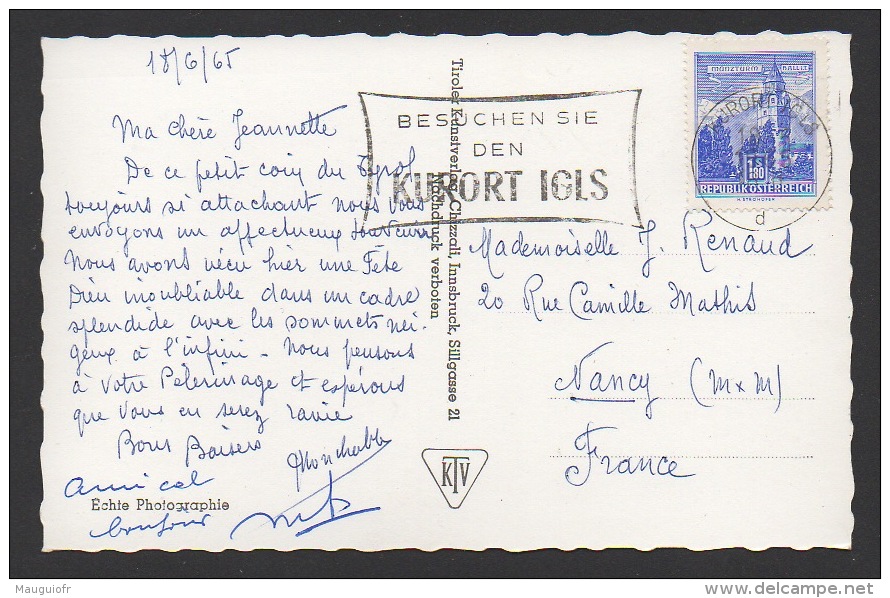 18/6/65
Ma chère Jeannette
De ce petit coin du Tyrol
toujours si attachant nous vous
envoyons un affectueux souvenir
Nous avons vécu hier une Fête
Dieu inoubliable dans un cadre
splendide avec les sommets nei-
geux à l'infini - nous pensons
à votre Pèlerinage et espérons
que vous en serez ravie
Bons Baisers
Amical
bonjour
Echte Photographie
Tiroler Kunstverlag Chizzali, Innsbruck, Sillgasse 21
Nachdruck verboten
KTV
BESUCHEN SIE
DEN
KURORT IGLS
MÜNZTURM HALL I.T.
S 1·80
REPUBLIK ÖSTERREICH
KURORT IGLS
d
Mademoiselle J. Renaud
20 Rue Camille Mathis
Nancy (M x M)
France
Mauguiofr
www.delcampe.net